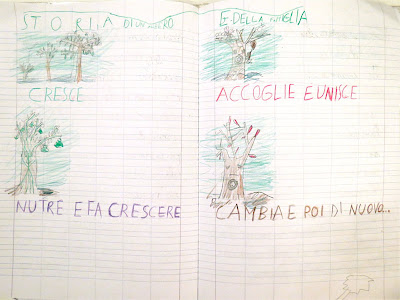 STORIA DI UN ALBERO
E DELLA FAMIGLIA
CRESCE
ACCOGLIE E UNISCE
NUTRE E FA CRESCERE
CAMBIA E POI DI NUOVO...